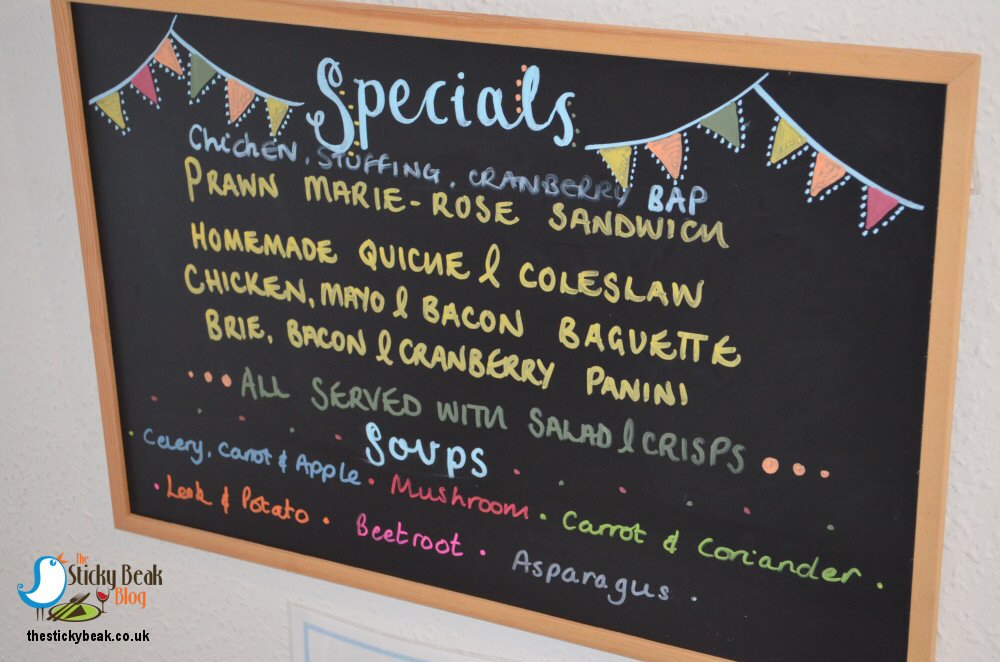 Specials
Chicken, STUFFING, CRANBERRY BAP
PRAWN MARIE-ROSE SANDWICH
HOMEMADE QUICHE & COLESLAW
CHICKEN, MAYO & BACON BAGUETTE
BRIE, BACON & CRANBERRY PANINI
...ALL SERVED WITH SALAD & CRISPS...
Soups
Celery, Carrot & Apple • Mushroom • Carrot & Coriander •
• Leek & Potato • Beetroot • Asparagus •
The
Sticky Beak
Blog
thestickybeak.co.uk